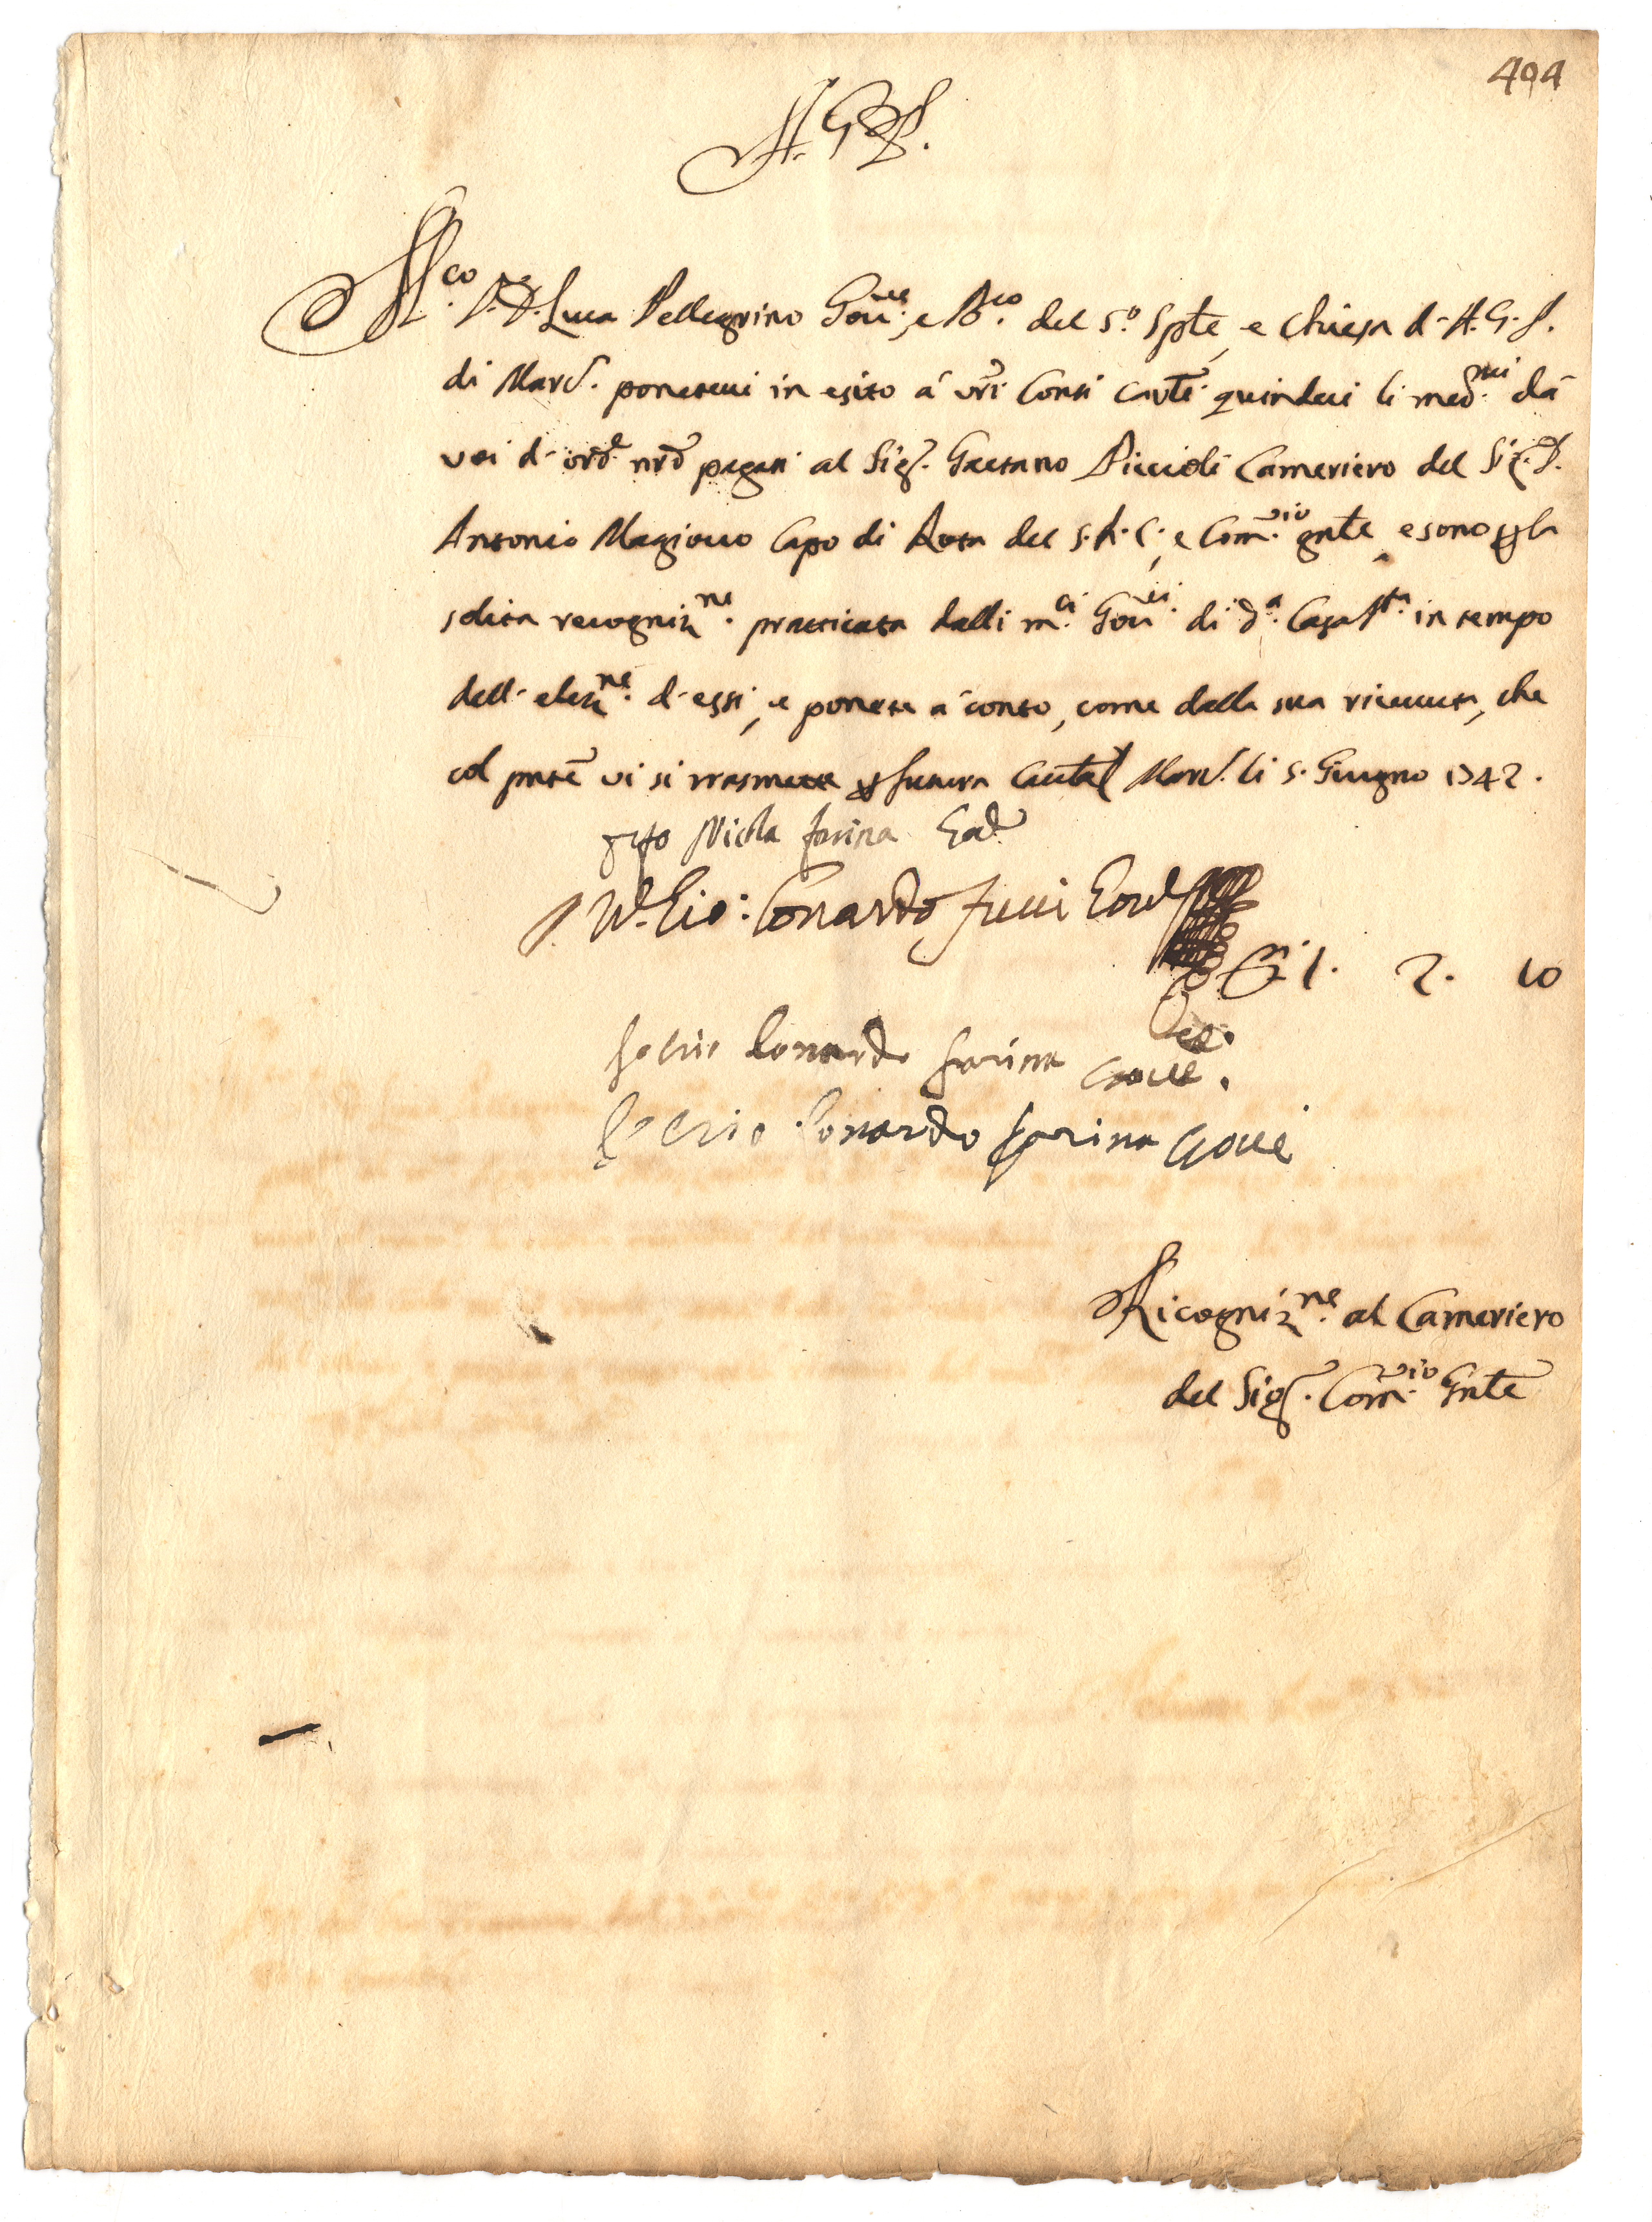 494
A. G. P.
M.co D.r D. Luca Pellegrino Gou.re, e B.co del S.o Spte, e Chiesa d- A. G. P.
di Marc. ponetevi in esito à vri Conti carte quindeci li med.mi da
voi d- ord.e nro pagati al Sig.r Gaetano Piccioli Cameriero del Sig.r D.
Antonio Magiouo Capo di Rota del S. R. C., e Com.rio gnle, e sono p la
solita recogniz.ne pratticata dalli m.ci Gou.ri di d.a Casa S.ta in tempo
dell- elez.ne d- essi, e ponete à conto, come dalla sua riceuuta, che
col pnte vi si trasmette p futura Cautela Marc. li 5. Giugno 1742.
Nicola farina
D. Gio: Lonardo
1. 2. 10
Lonardo farina Goue.
Lonardo farina Goue
Ricogniz.ne al Cameriero
del Sig.r Com.rio Gnle